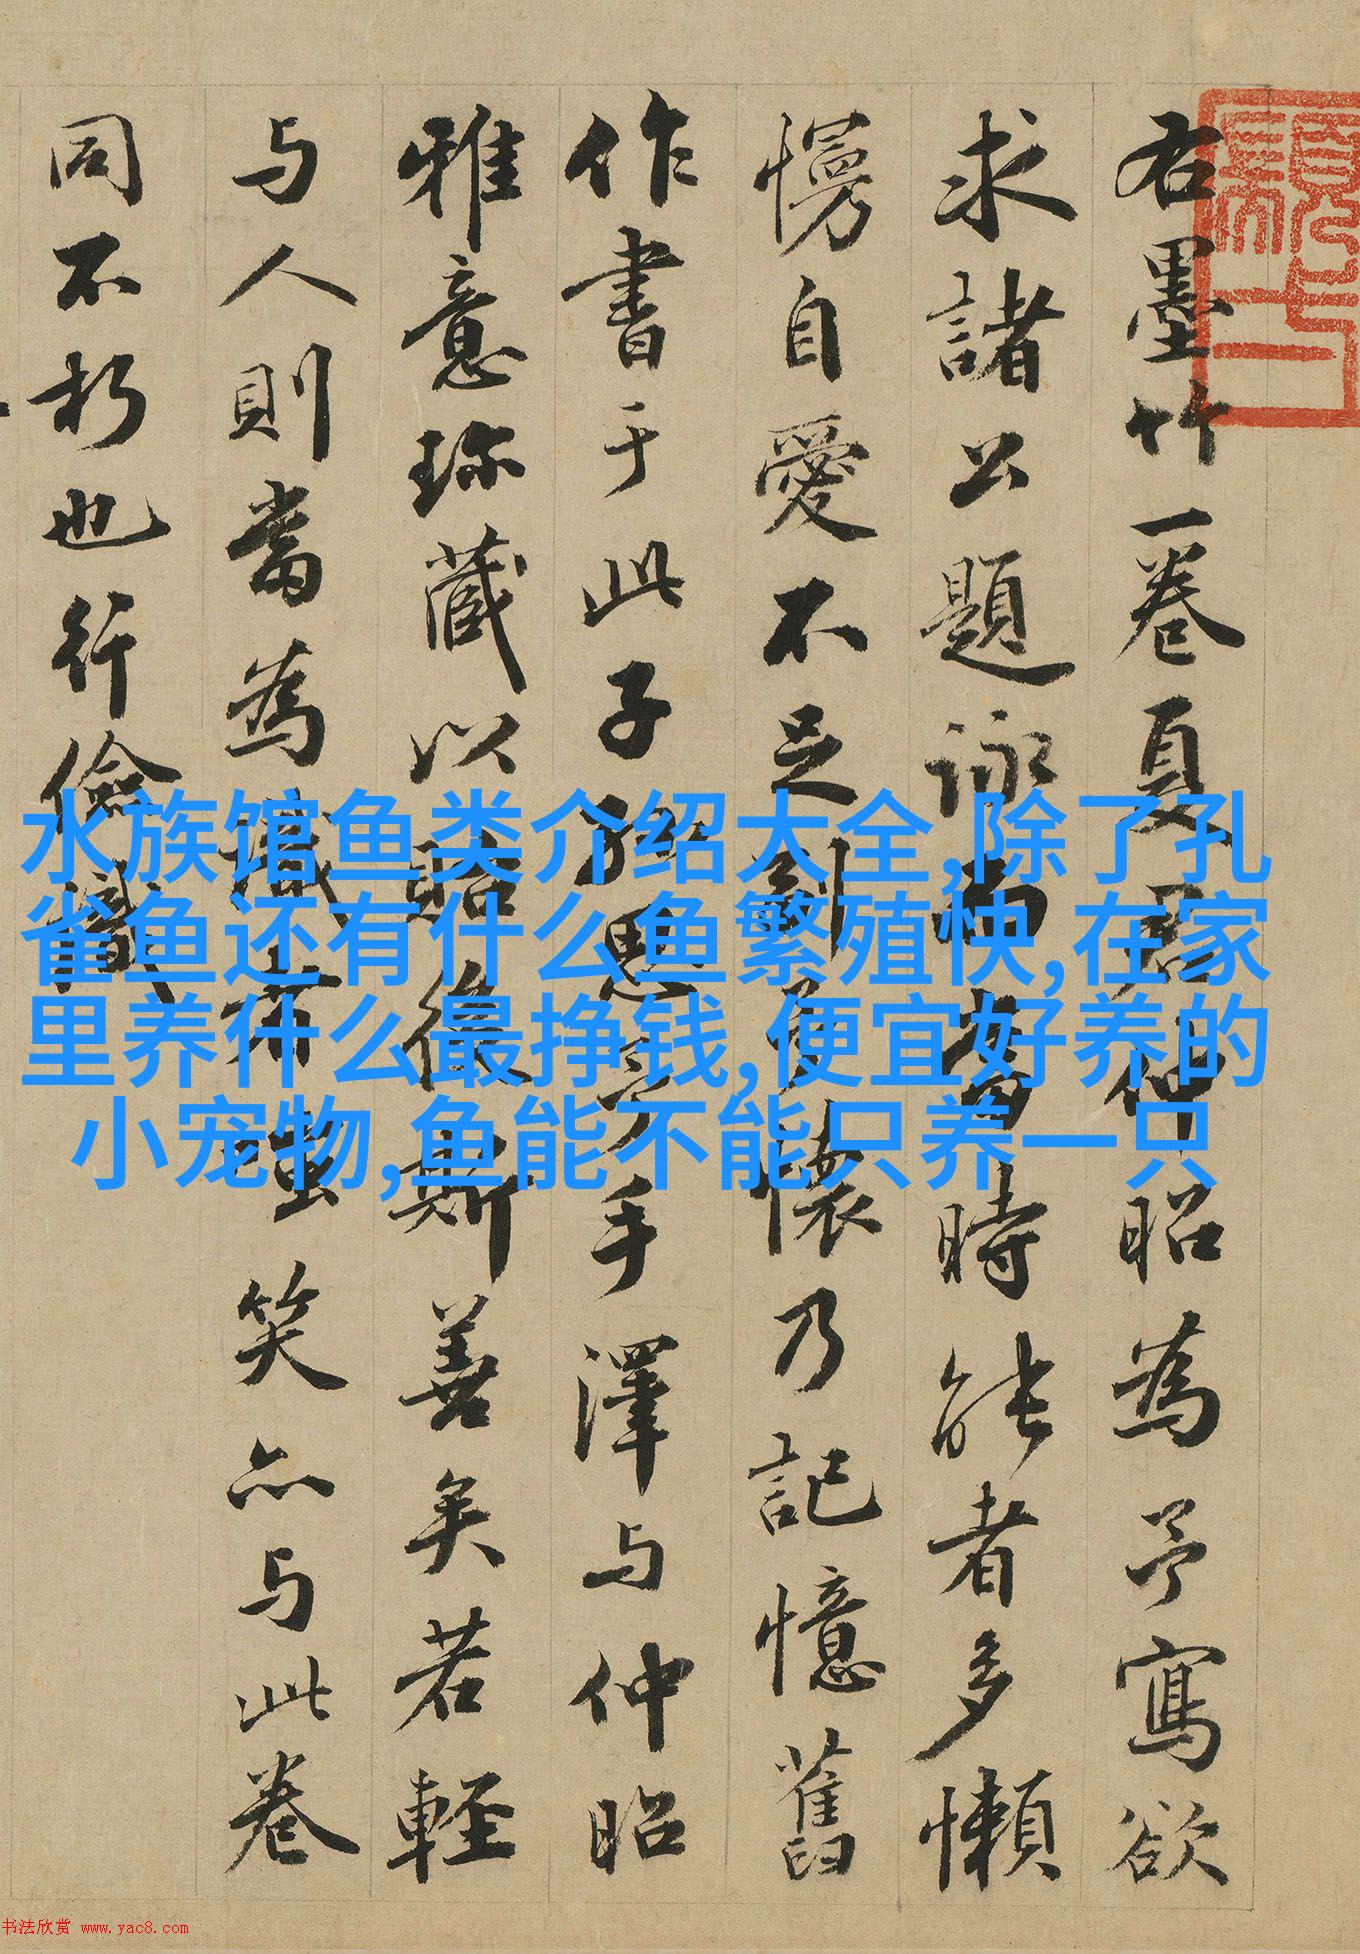 右墨竹一卷夏君仲昭為予寫欲
求諸公題詠而當時能者多懶
慢自愛不足予懷乃記憶舊
作書于此子孫思予手澤与仲昭
雅意珎藏以貽後斯善矣若輕
与人則當為識蚩笑亦与此卷
同不朽也行儉識
水族馆鱼类介绍大全,除了孔
雀鱼还有什么鱼繁殖快,在家
里养什么最挣钱,便宜好养的
小宠物,鱼能不能只养一只
书法欣赏 www.yac8.com